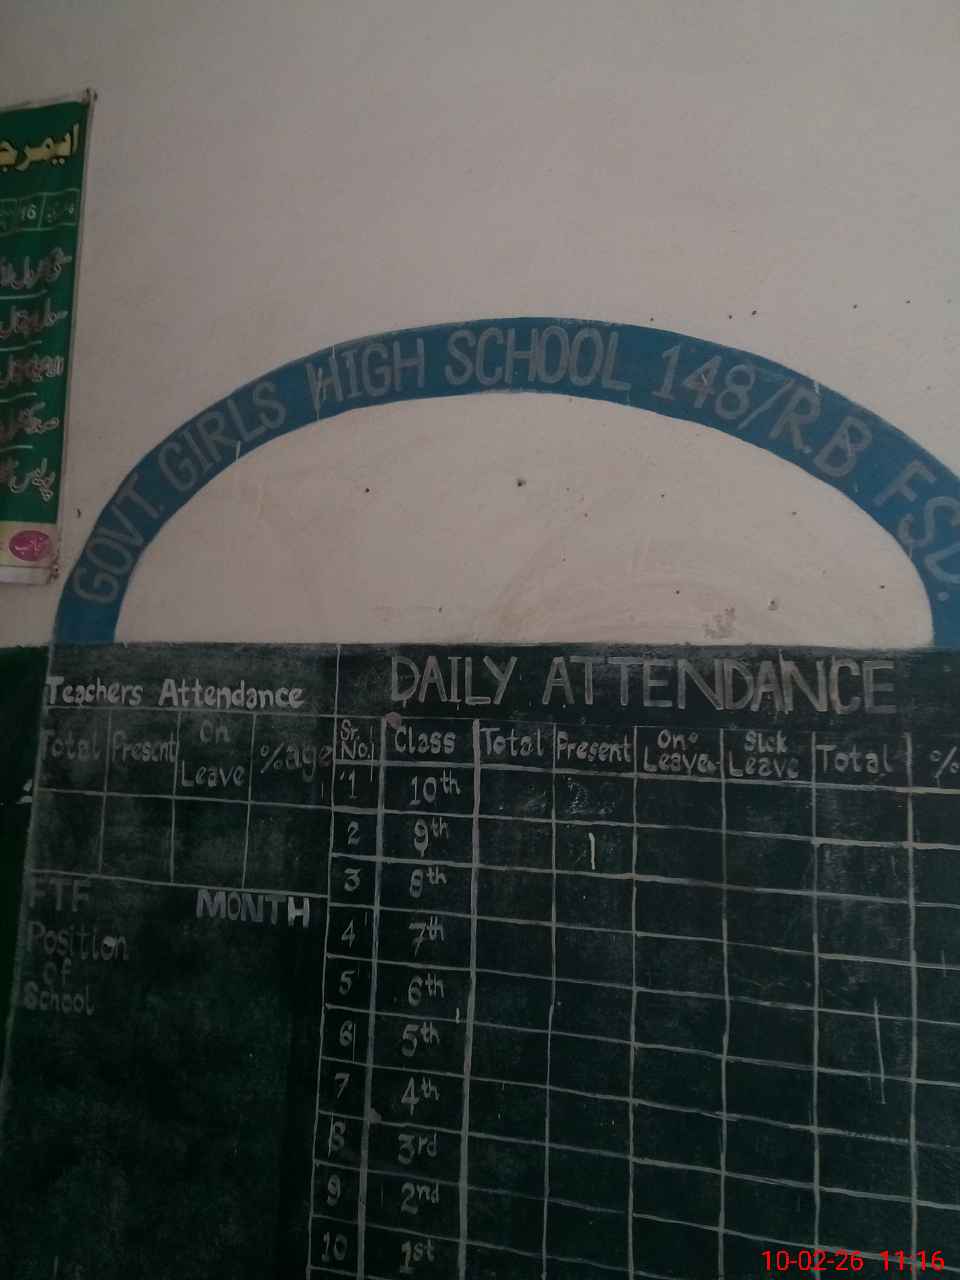 ایمرج
16
GOVT. GIRLS HIGH SCHOOL 148/R.B FSD.
DAILY ATTENDANCE
Teachers Attendance
Total Present On Leave %age
Sr. No. Class Total Present On Leave Sick Leave Total %
1 10th
2 9th
3 8th
4 7th
5 6th
6 5th
7 4th
8 3rd
9 2nd
10 1st
FTF
MONTH
Position
of
School
10-02-26 11:16